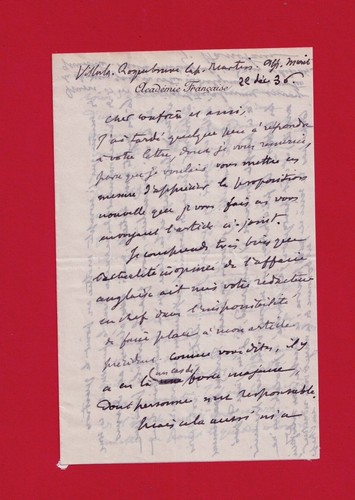 Roquebrune Cap Martin. Alp. Marit
Académie Française
22 déc 36.
Cher confrère et ami,
J'ai tardé quelque peu à répondre
à votre lettre, dont je vous remercie,
parce que je voulais vous mettre en
mesure d'apprécier la proposition
nouvelle que je vous fais en vous
envoyant l'article ci-joint.
Je comprends très bien que
l'actualité inopinée de l'affaire
anglaise ait mis votre rédacteur
en chef dans l'impossibilité
de faire place à mon article
précédent. Comme vous dites, il y
a eu là un cas de force majeure,
dont personne n'est responsable.
Mais cela aussi m'a